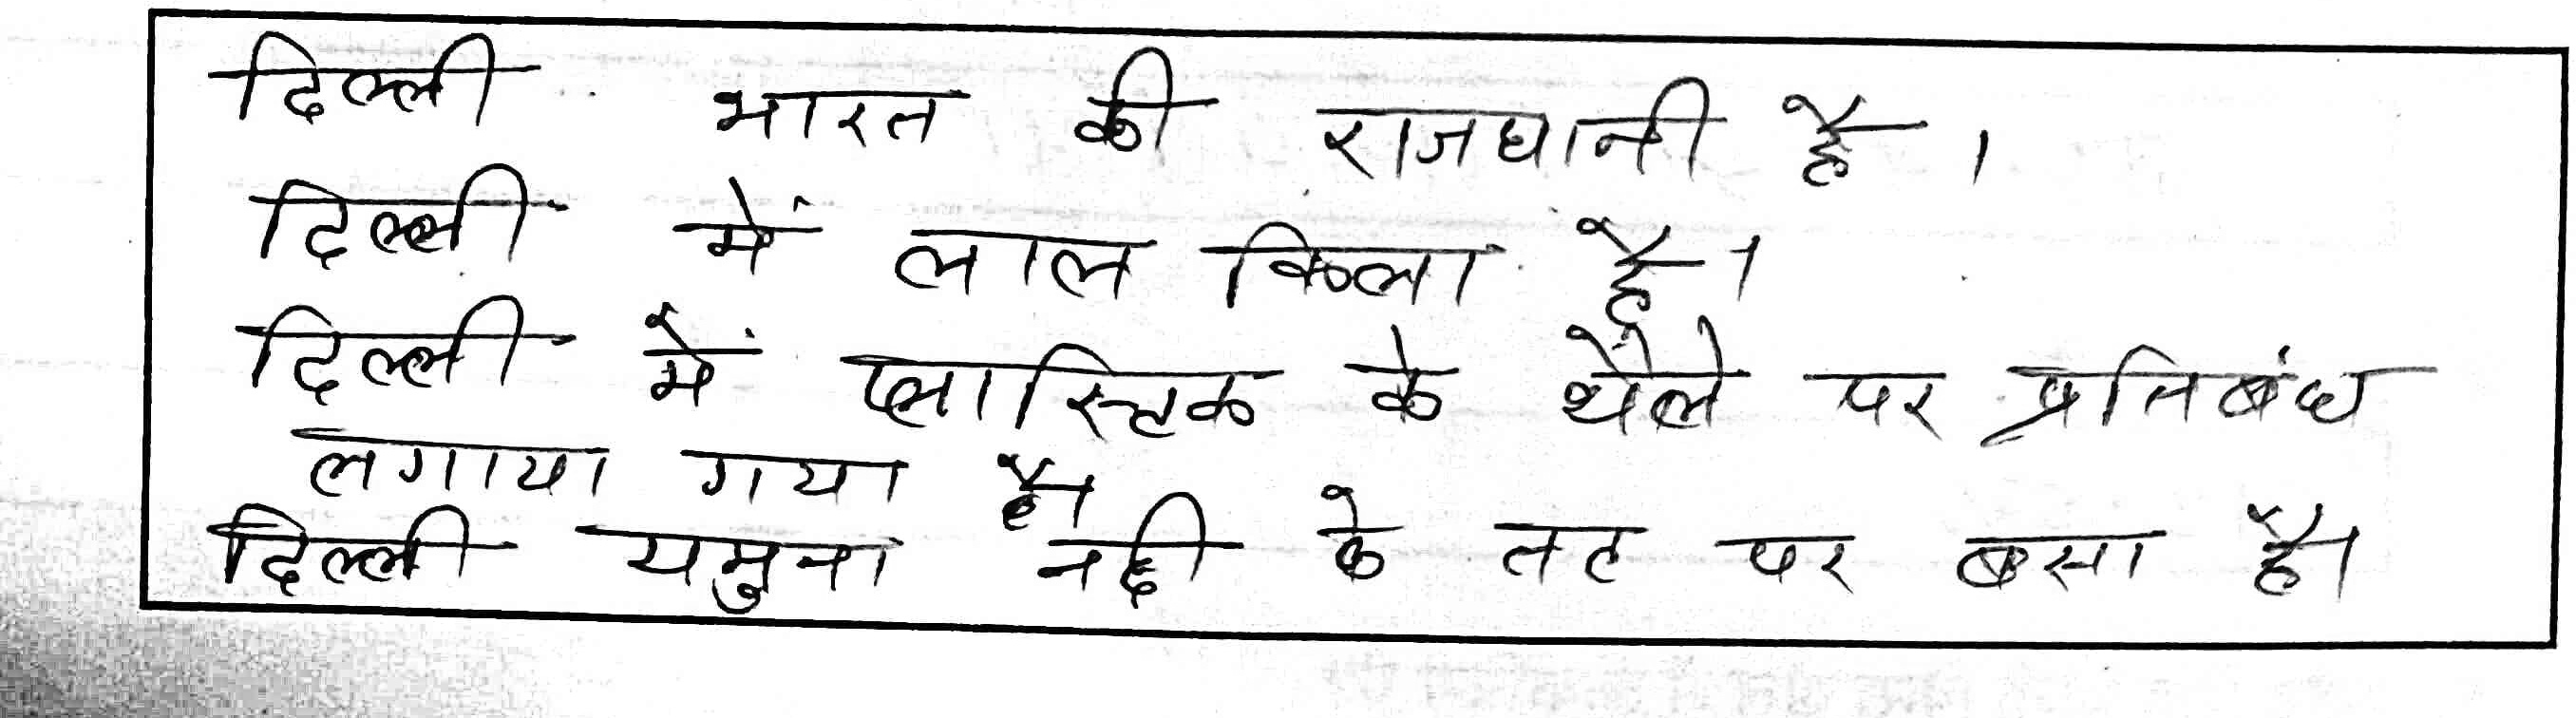 दिल्ली भारत की राजधानी है।
दिल्ली में लाल किला है।
दिल्ली में प्लास्टिक के थैले पर प्रतिबंध
लगाया गया है।
दिल्ली यमुना नदी के तट पर बसा है।